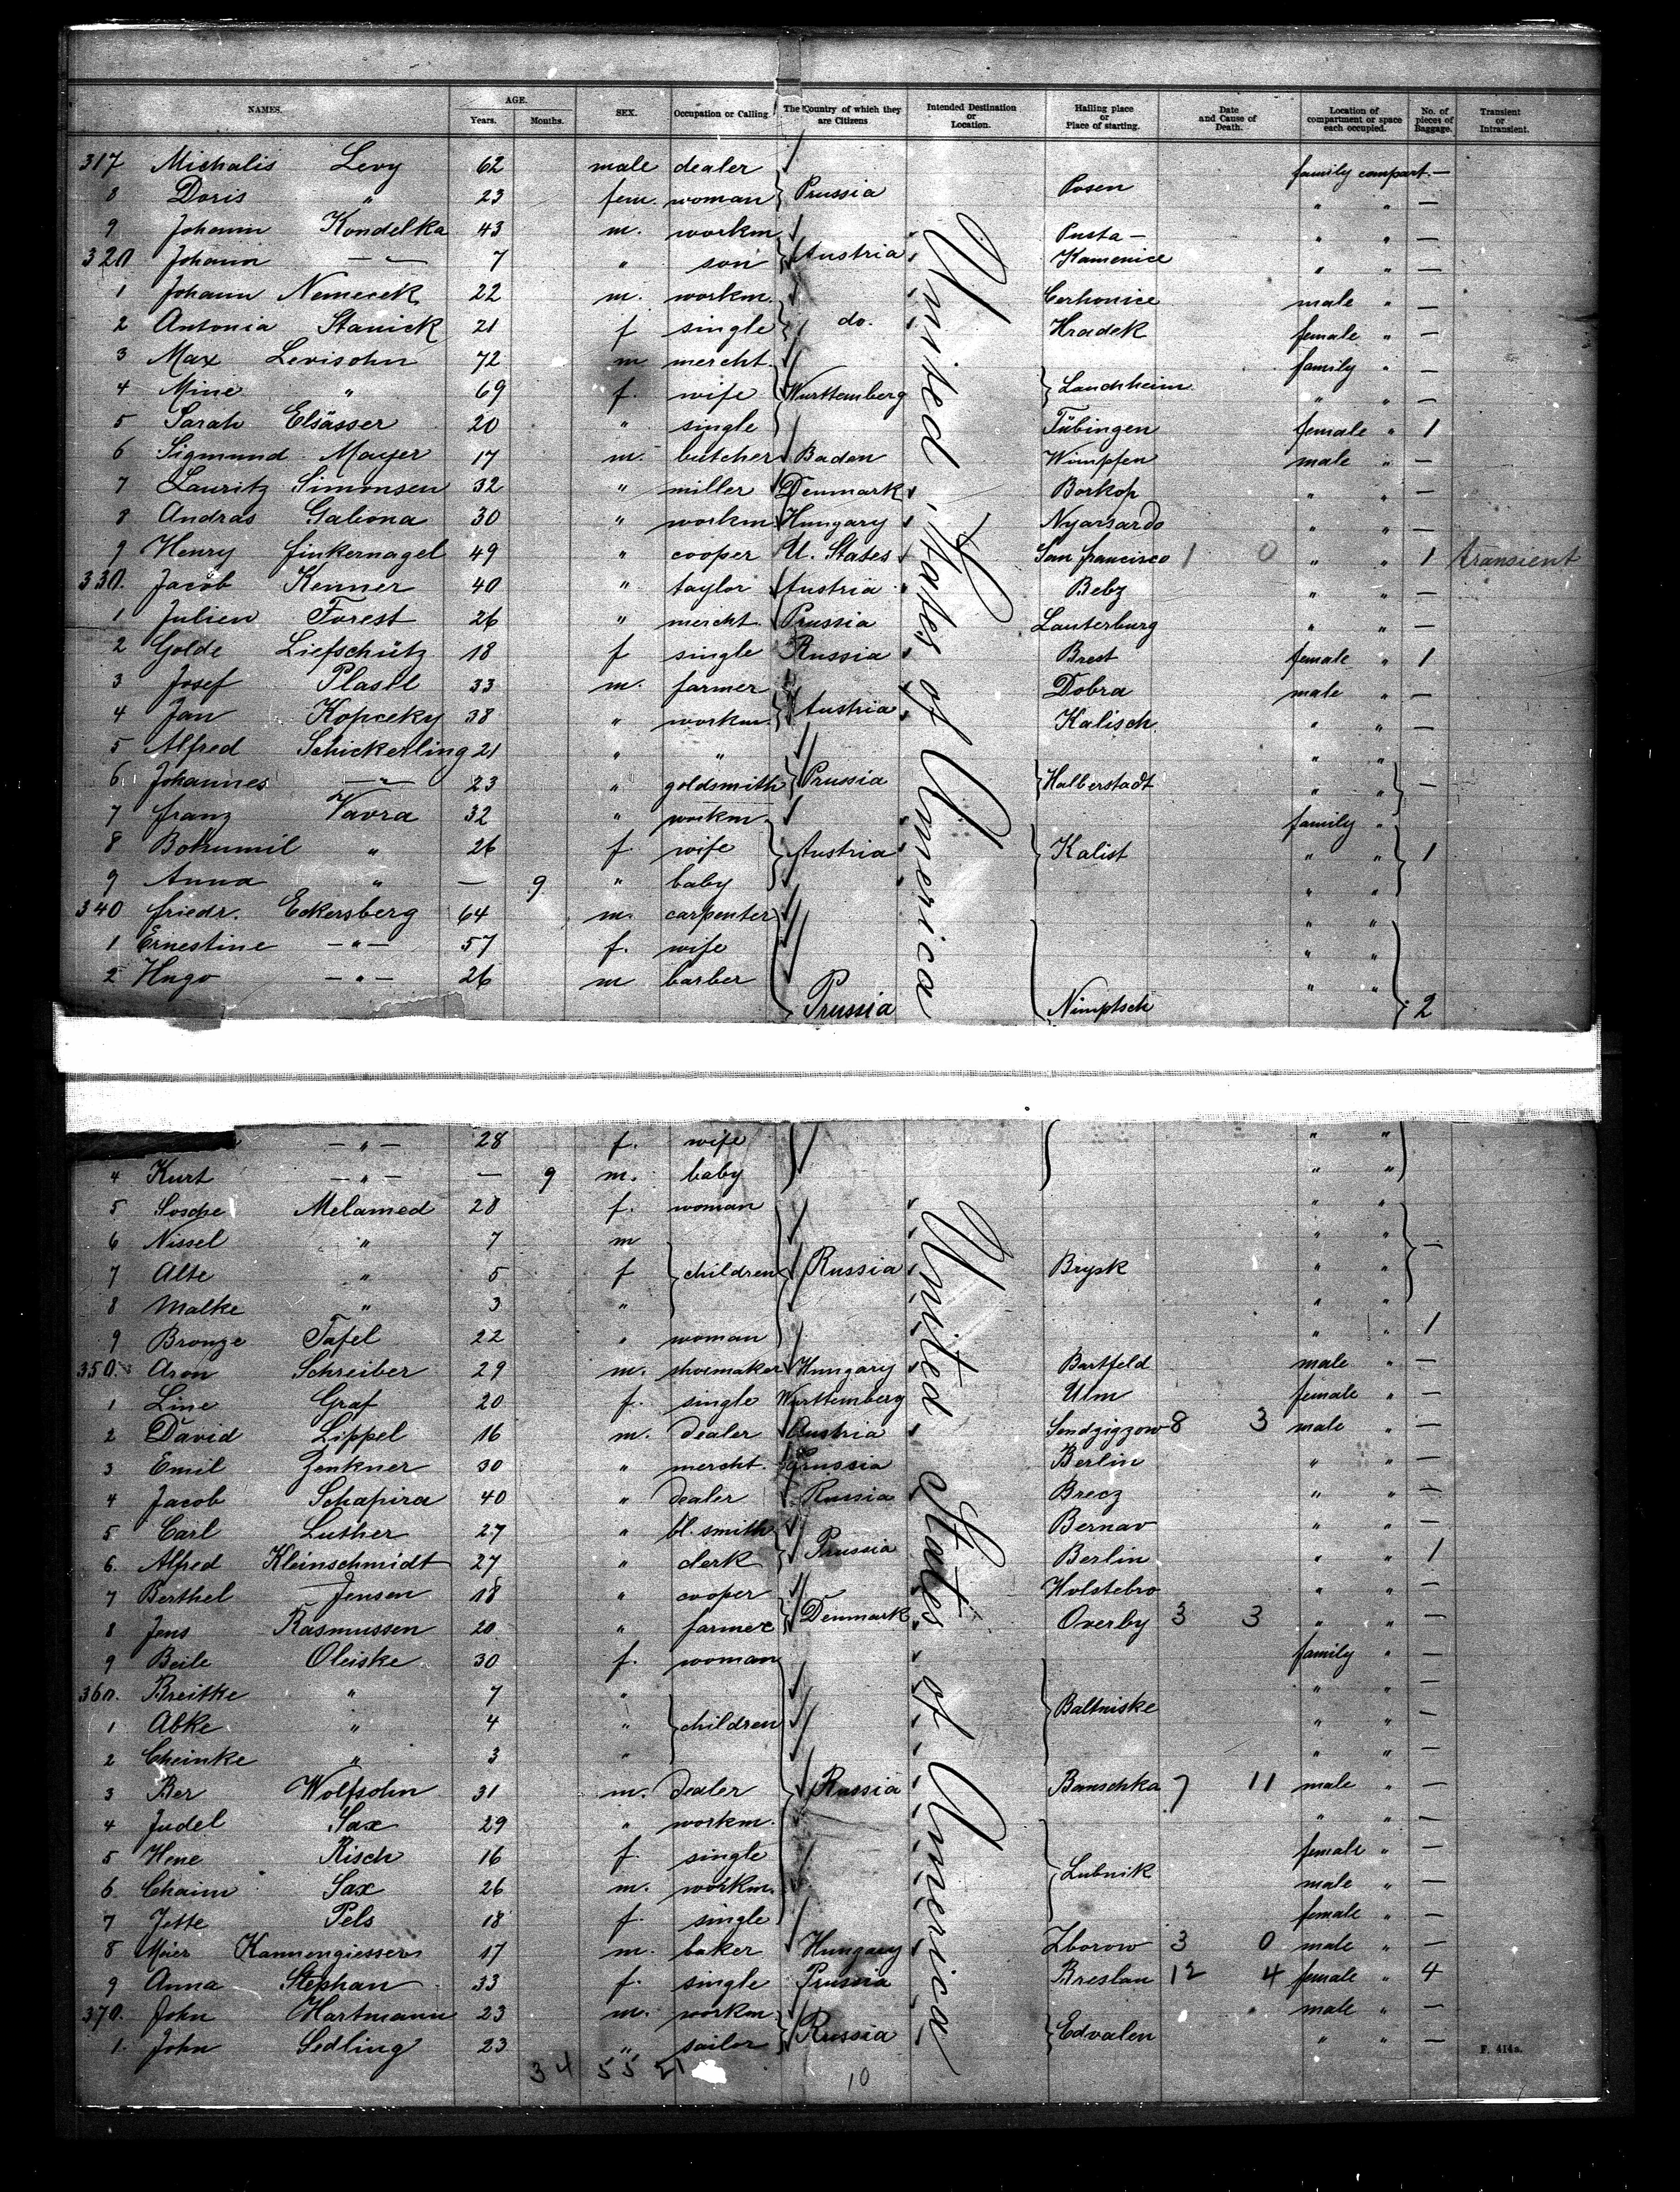 NAMES. AGE. Years. Months. SEX. Occupation or Calling. The Country of which they are Citizens Intended Destination or Location. Hailing place or Place of starting. Date and Cause of Death. Location of compartment or space each occupied. No. of pieces of Baggage. Transient or Intransient.
317 Michalis Levy 62 male dealer family compart. —
8 Doris " 23 fem. woman Prussia Posen " " —
9 Johann Kondelka 43 m. workm. Pusta- " " —
320 Johann —"— 7 " son Austria Kamenice " " —
1 Johann Nemecek 22 m. workm. Cerhonice male " —
2 Antonia Stanick 21 f single do. Hradek female " —
3 Max Levisohn 72 m mercht. family " —
4 Mine " 69 f. wife Wurttemberg Laudheim " " —
5 Sarah Elsässer 20 " single Tübingen female " 1
6 Sigmund Mayer 17 m. butcher Baden Wimpfen male " —
7 Lauritz Simonsen 32 " miller Denmark Borkop " " —
8 Andras Galiona 30 " workm Hungary Nyarsardo " " —
9 Henry Finkernagel 49 " cooper U. States San francisco 1 0 " " 1 transient
330. Jacob Kenner 40 " taylor Austria Beby " " —
1 Julien Forest 26 " mercht. Prussia Lauterburg " " —
2 Golde Liefschütz 18 f single Russia Brest female " 1
3 Josef Plasil 33 m. farmer Dobra male " —
4 Jan Kopceky 38 " workm. Austria Kalisch. " " —
5 Alfred Schickerling 21 " " " "
6 Johannes —"— 23 " goldsmith Prussia Halberstadt " " —
7 Franz Vavra 32 " workm. family "
8 Bohumil " 26 f. wife Austria Kalist " " 1
9 Anna " — 9 " baby " "
340 Friedr. Eckersberg 64 m. carpenter " "
1 Ernestine —"— 57 f. wife " "
2 Hugo —"— 26 m barber " "
Prussia Nimptsch 2
United States of America
—"— 28 f. wife " "
4 Kurt —"— — 9 m. baby " "
5 Sosche Melamed 28 f. woman " "
6 Nissel " 7 m " " —
7 Alte " 5 f children Russia Brysk " "
8 Malke " 3 " " "
9 Bronze Tafel 22 " woman " " 1
350. Aron Schreiber 29 m. shoemaker Hungary Bartfeld male " —
1 Line Graf 20 f. single Wurttemberg Ulm female " —
2 David Lippel 16 m. dealer Austria Sendzigzow 8 3 male " —
3 Emil Zenkner 30 " mercht. Prussia Berlin " " —
4 Jacob Schapira 40 " dealer Russia Brecz " " —
5 Carl Luther 27 " bl. smith Bernav " " —
6. Alfred Kleinschmidt 27 " clerk Prussia Berlin " " 1
7 Berthel Jensen 18 " cooper Holstebro " " —
8 Jens Rasmussen 20 " farmer Denmark Overby 3 3 " " —
9 Beile Oleiske 30 f. woman family " —
360. Breitke " 7 " " " —
1 Abke " 4 " children Baltniske " " —
2 Cheinke " 3 " " " —
3 Ber Wolfsohn 31 m. dealer Russia Banschka 7 11 male " —
4 Judel Sax 29 " workm. " " —
5 Hene Risch 16 f single female " —
6 Chaim Sax 26 m. workm. Lubnik male " —
7 Jette Pels 18 f. single female " —
8 Meier Kannengiesser 17 m. baker Hungary Zborow 3 0 male " —
9 Anna Stephan 33 f. single Prussia Breslau 12 4 female " 4
370. John Hartmann 23 m. workm. male " —
1. John Sedling 23 " sailor Russia Edvalen " " —
United States of America
34 55 21 10
F. 414a.